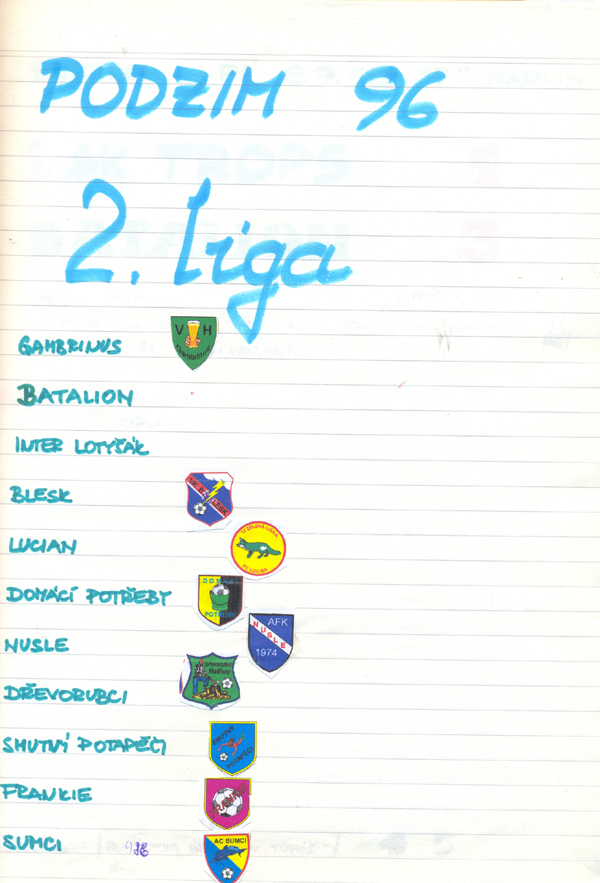 PODZIM 96
2. Liga
GAMBRINUS
V H
Gambrinus
BATALION
INTER LOTYŠÁK
BLESK
LUCIAN
DOMÁCÍ POTŘEBY
AFK
NUSLE
1974
NUSLE
DŘEVORUBCI
SMUTNÍ POTAPĚČI
FRANKIE
SUMCI
AC SUMCI